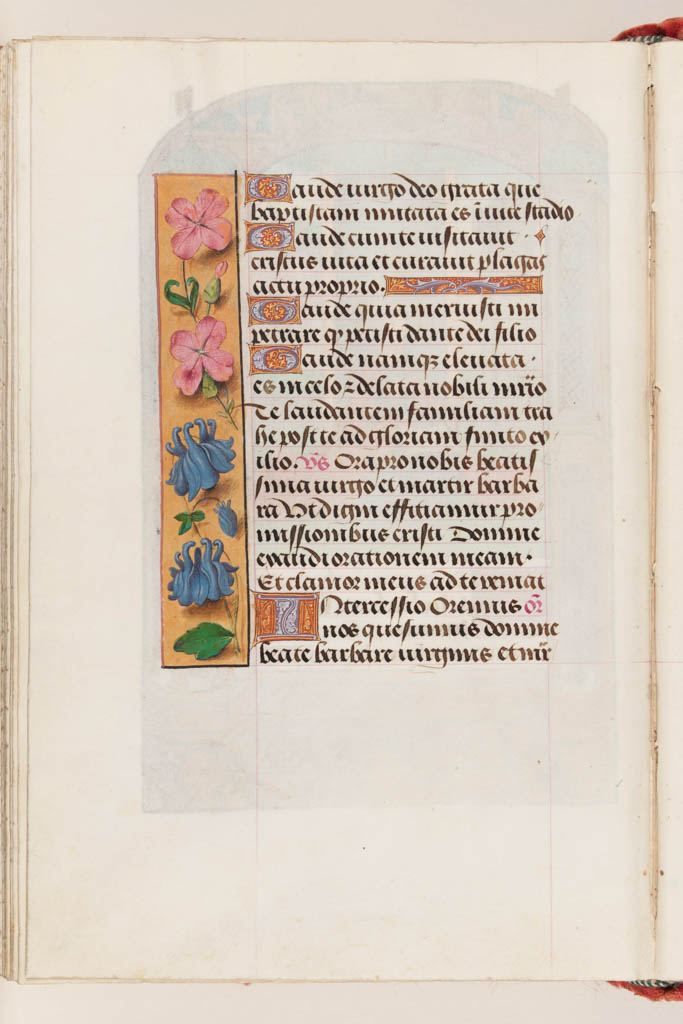 Gaude uirgo deo grata que
baptistam imitata es i uite stadio
Gaude cum te uisitauit
cristus uita et curauit plagas
actu proprio.
Gaude quia meruisti im
petrare qͥ petisti dante dei filio
Gaude namqꝫ eleuata.
es in celoꝝ delata nobili mr̄io
Te laudantem familiam tra
he post te ad gloriam finito ex
ilio. vs Ora pro nobis beatis
sima uirgo et martir barba
ra Vt digni efficiamur pro-
missionibus cristi Domine
exaudi orationem meam.
Et clamor meus ad te ueniat
Intercessio Oremus or̄
nos quesumus domine
beate barbare uirginis et mr̄